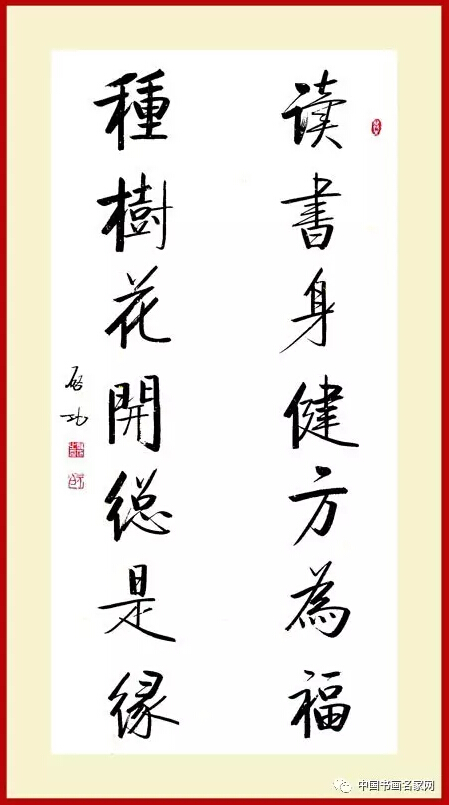 读書身健方為福
種樹花開總是缘
启功
中国书画名家网